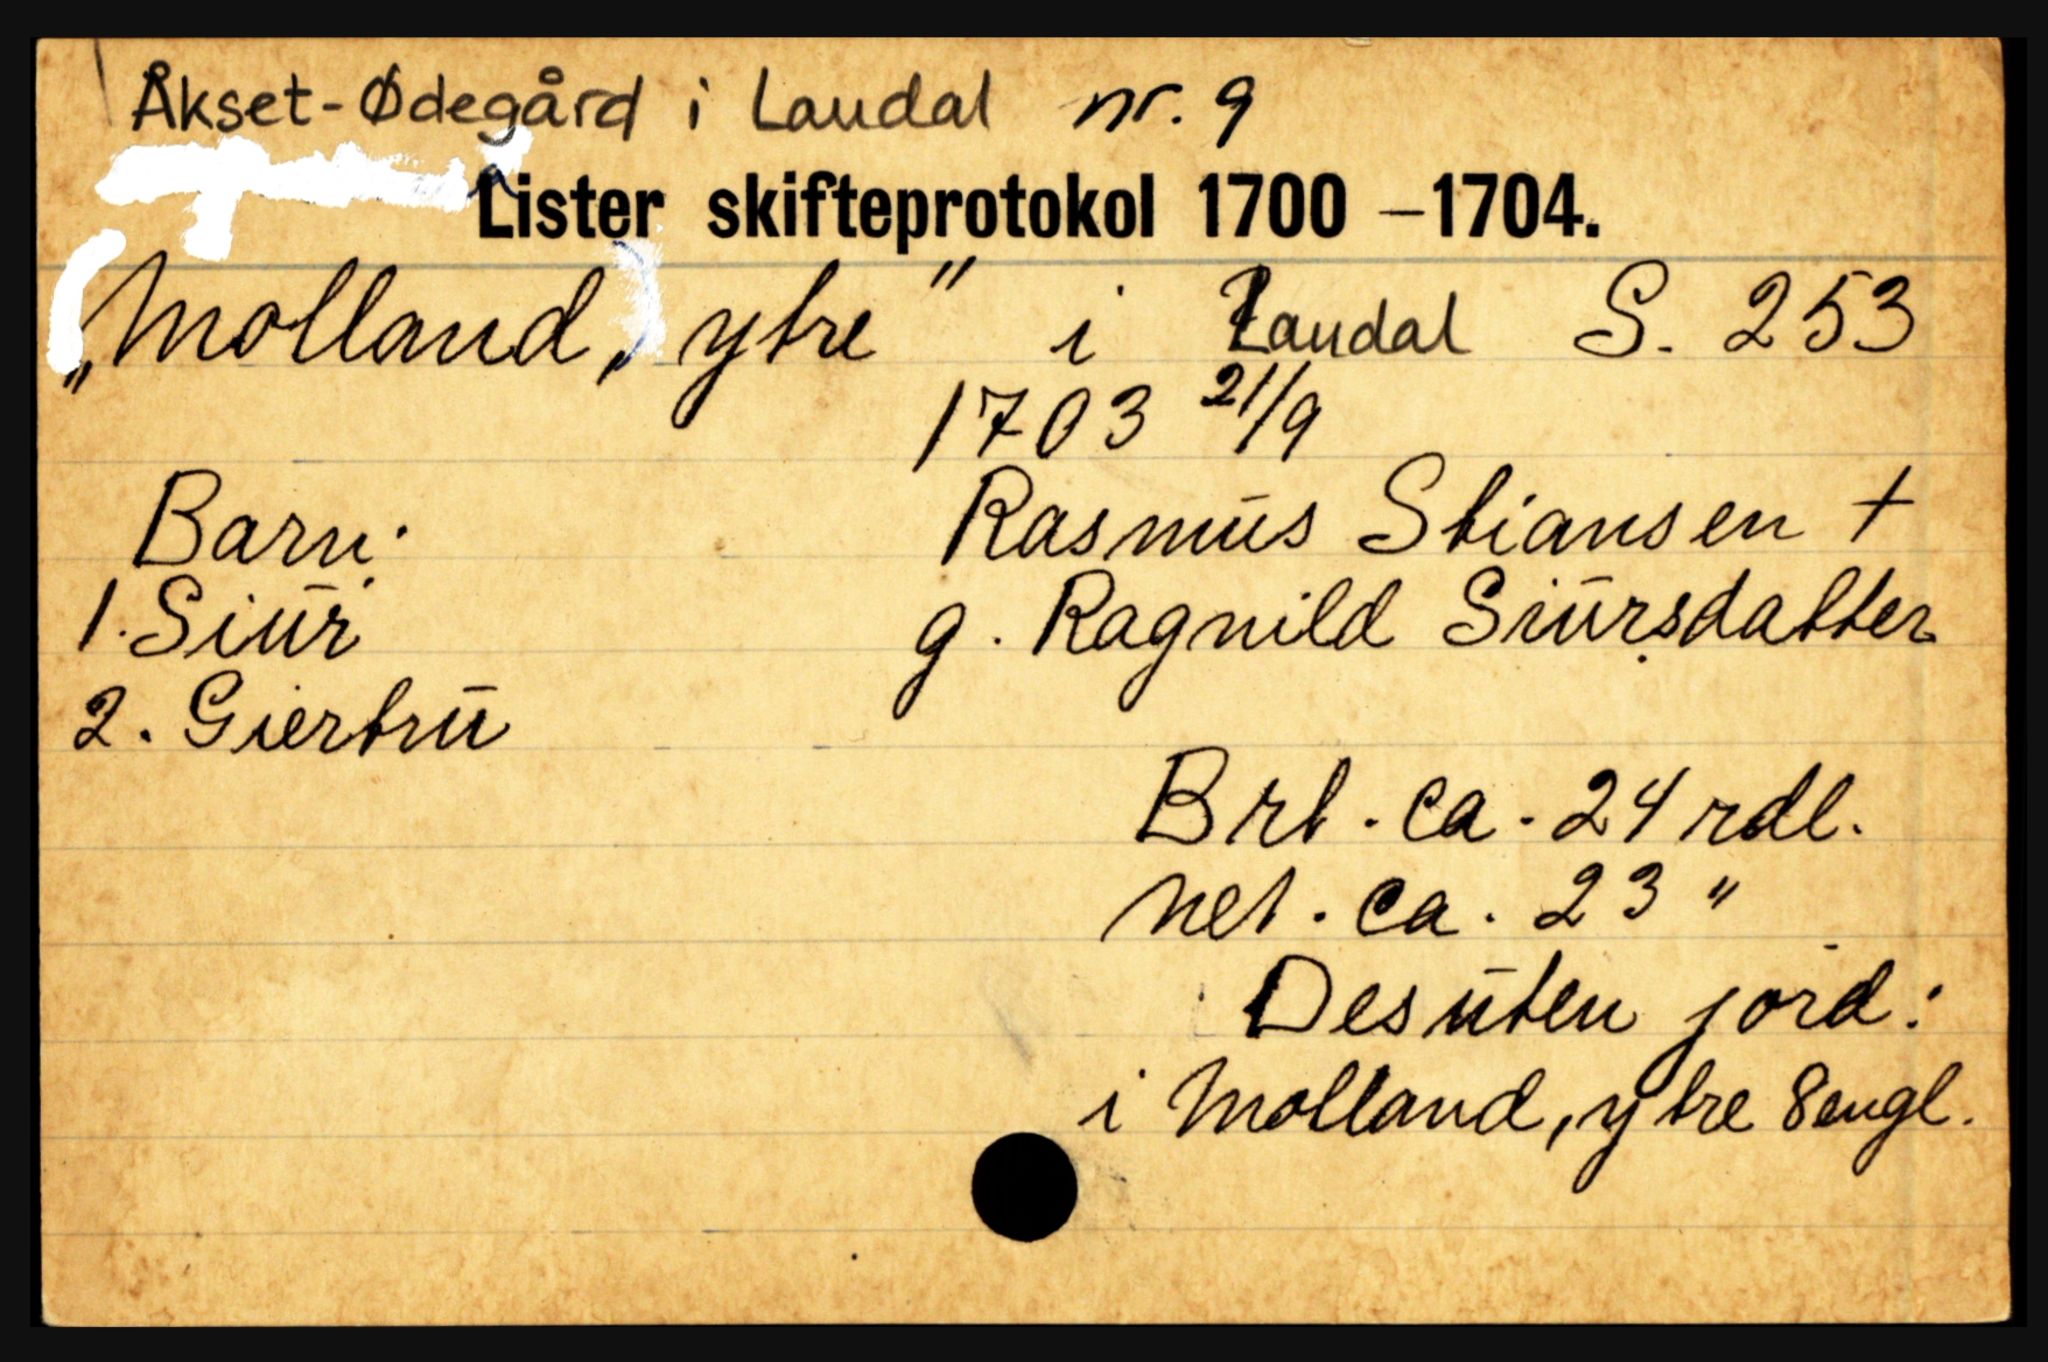 Åkset-Ødegård i Laudal nr. 9
Lister skifteprotokol 1700 – 1704.
„Molland, ytre" i Laudal S. 253
1703 21/9
Barn: Rasmus Stiansen +
1. Siur g. Ragnild Siursdatter
2. Giertru
Brt. ca. 24 rdl.
net. ca. 23 "
Desuten jord:
i Molland, ytre 8 engl.